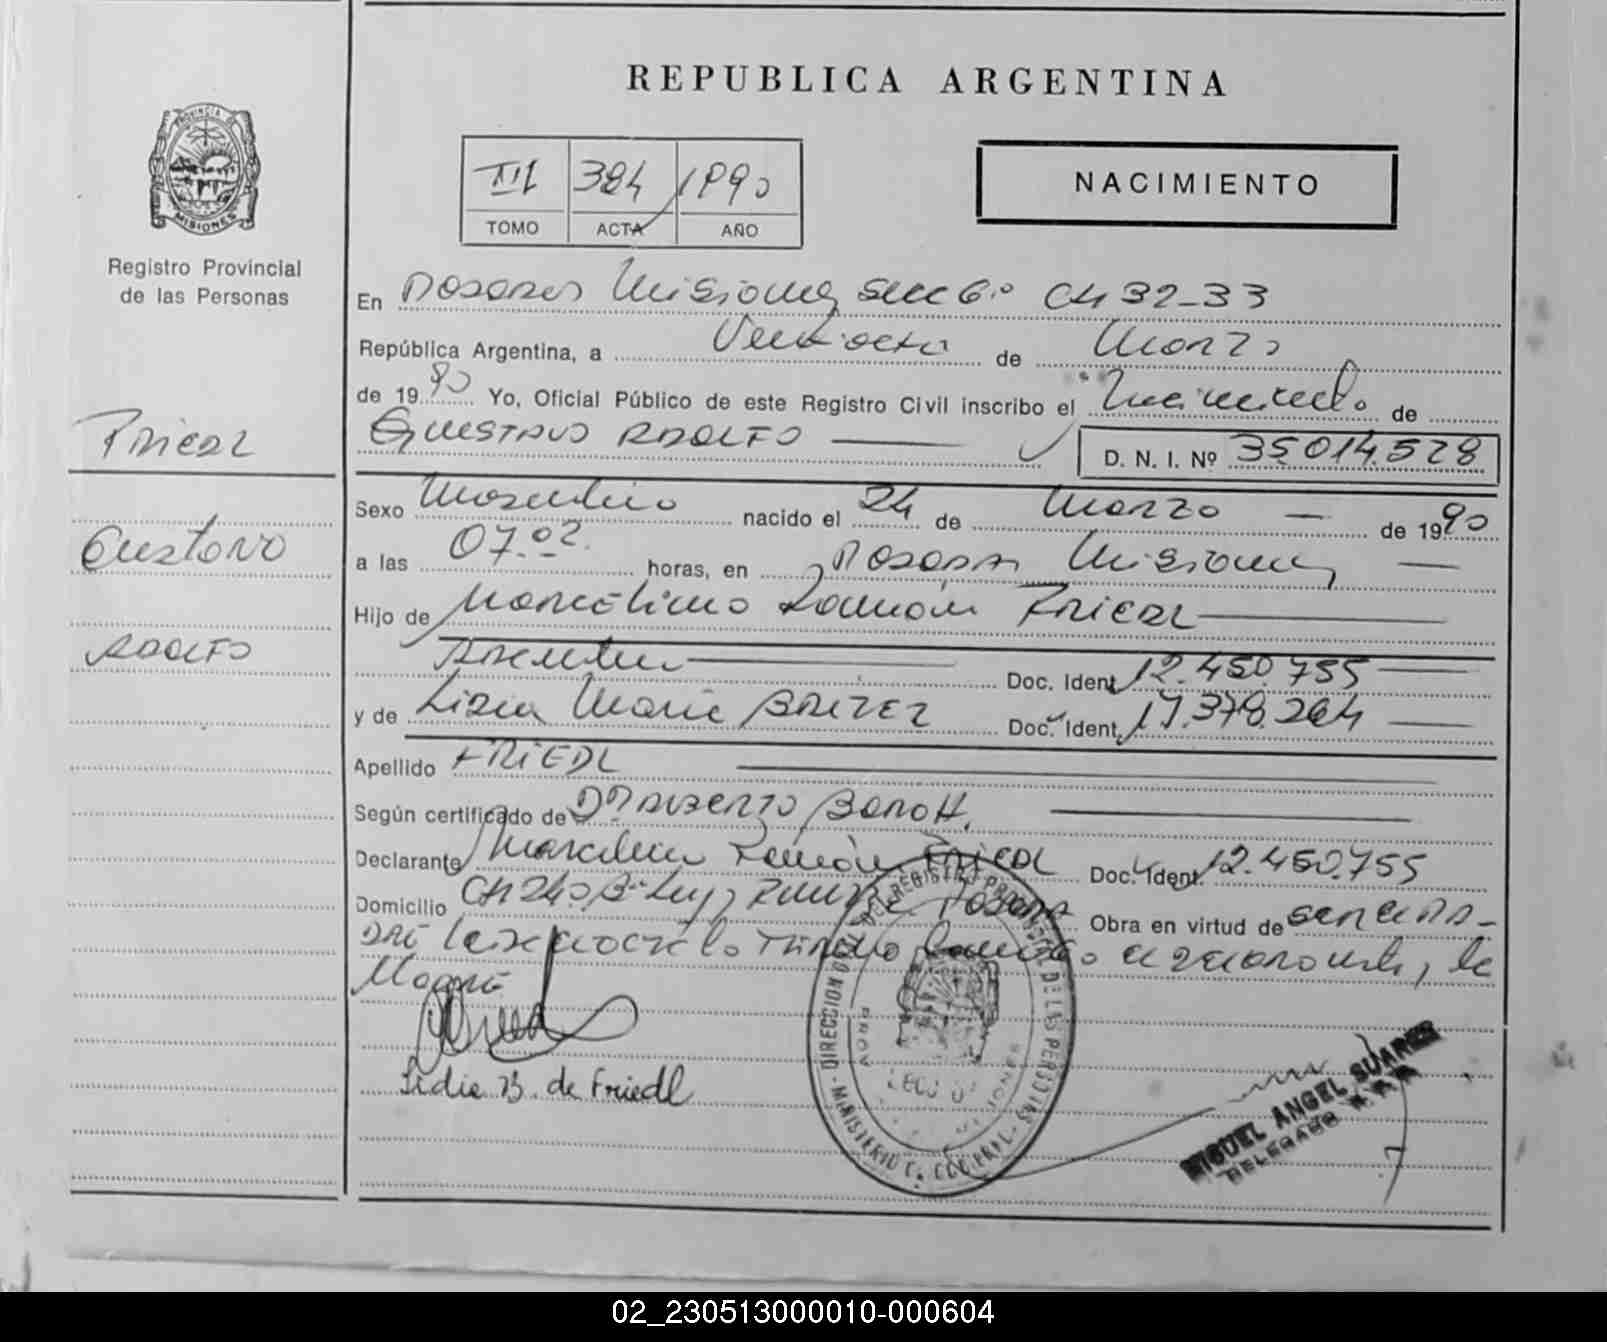 REPUBLICA ARGENTINA
PROVINCIA DE
MISIONES
Registro Provincial
de las Personas
III 384 1990
TOMO ACTA AÑO
NACIMIENTO
En Posadas Misiones Secc 6.º CH 32-33
República Argentina, a Veintiocho de Marzo
de 1990 Yo, Oficial Público de este Registro Civil inscribo el Nacimiento de
GUSTAVO ADOLFO D. N. I. Nº 35.014.528
FRIEDL
Gustavo
ADOLFO
Sexo Masculino nacido el 24 de Marzo de 1990
a las 07.02. horas, en Posadas Misiones
Hijo de Marcelino Ramón FRIEDL
Argentino Doc. Ident. 12.450.755
y de Lidia María BRITEZ Doc. Ident. 17.378.264
Apellido FRIEDL
Según certificado de DR ALBERTO
Declarante Marcelino Ramón FRIEDL Doc. Ident. 12.450.755
Domicilio CH 240 Posadas Obra en virtud de
lo
Madre
Lidia B. de Friedl
DIRECCION REGISTRO PROV. DE LAS PERSONAS
MINISTERIO
MIGUEL ANGEL SUAREZ
DELEGADO
02_230513000010-000604